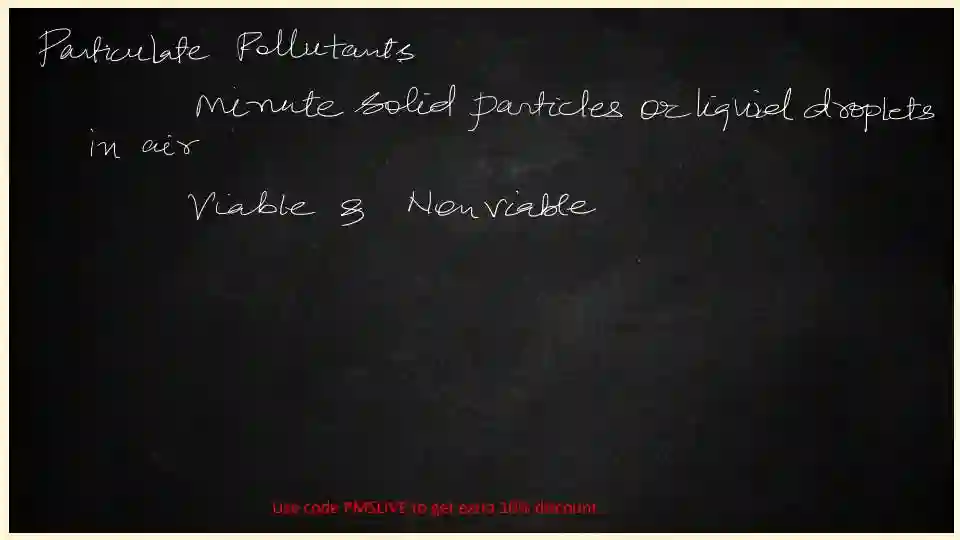 Particulate Pollutants
Minute solid particles or liquid droplets
in air
Viable & Nonviable
Use code PMSLIVE to get extra 10% discount.